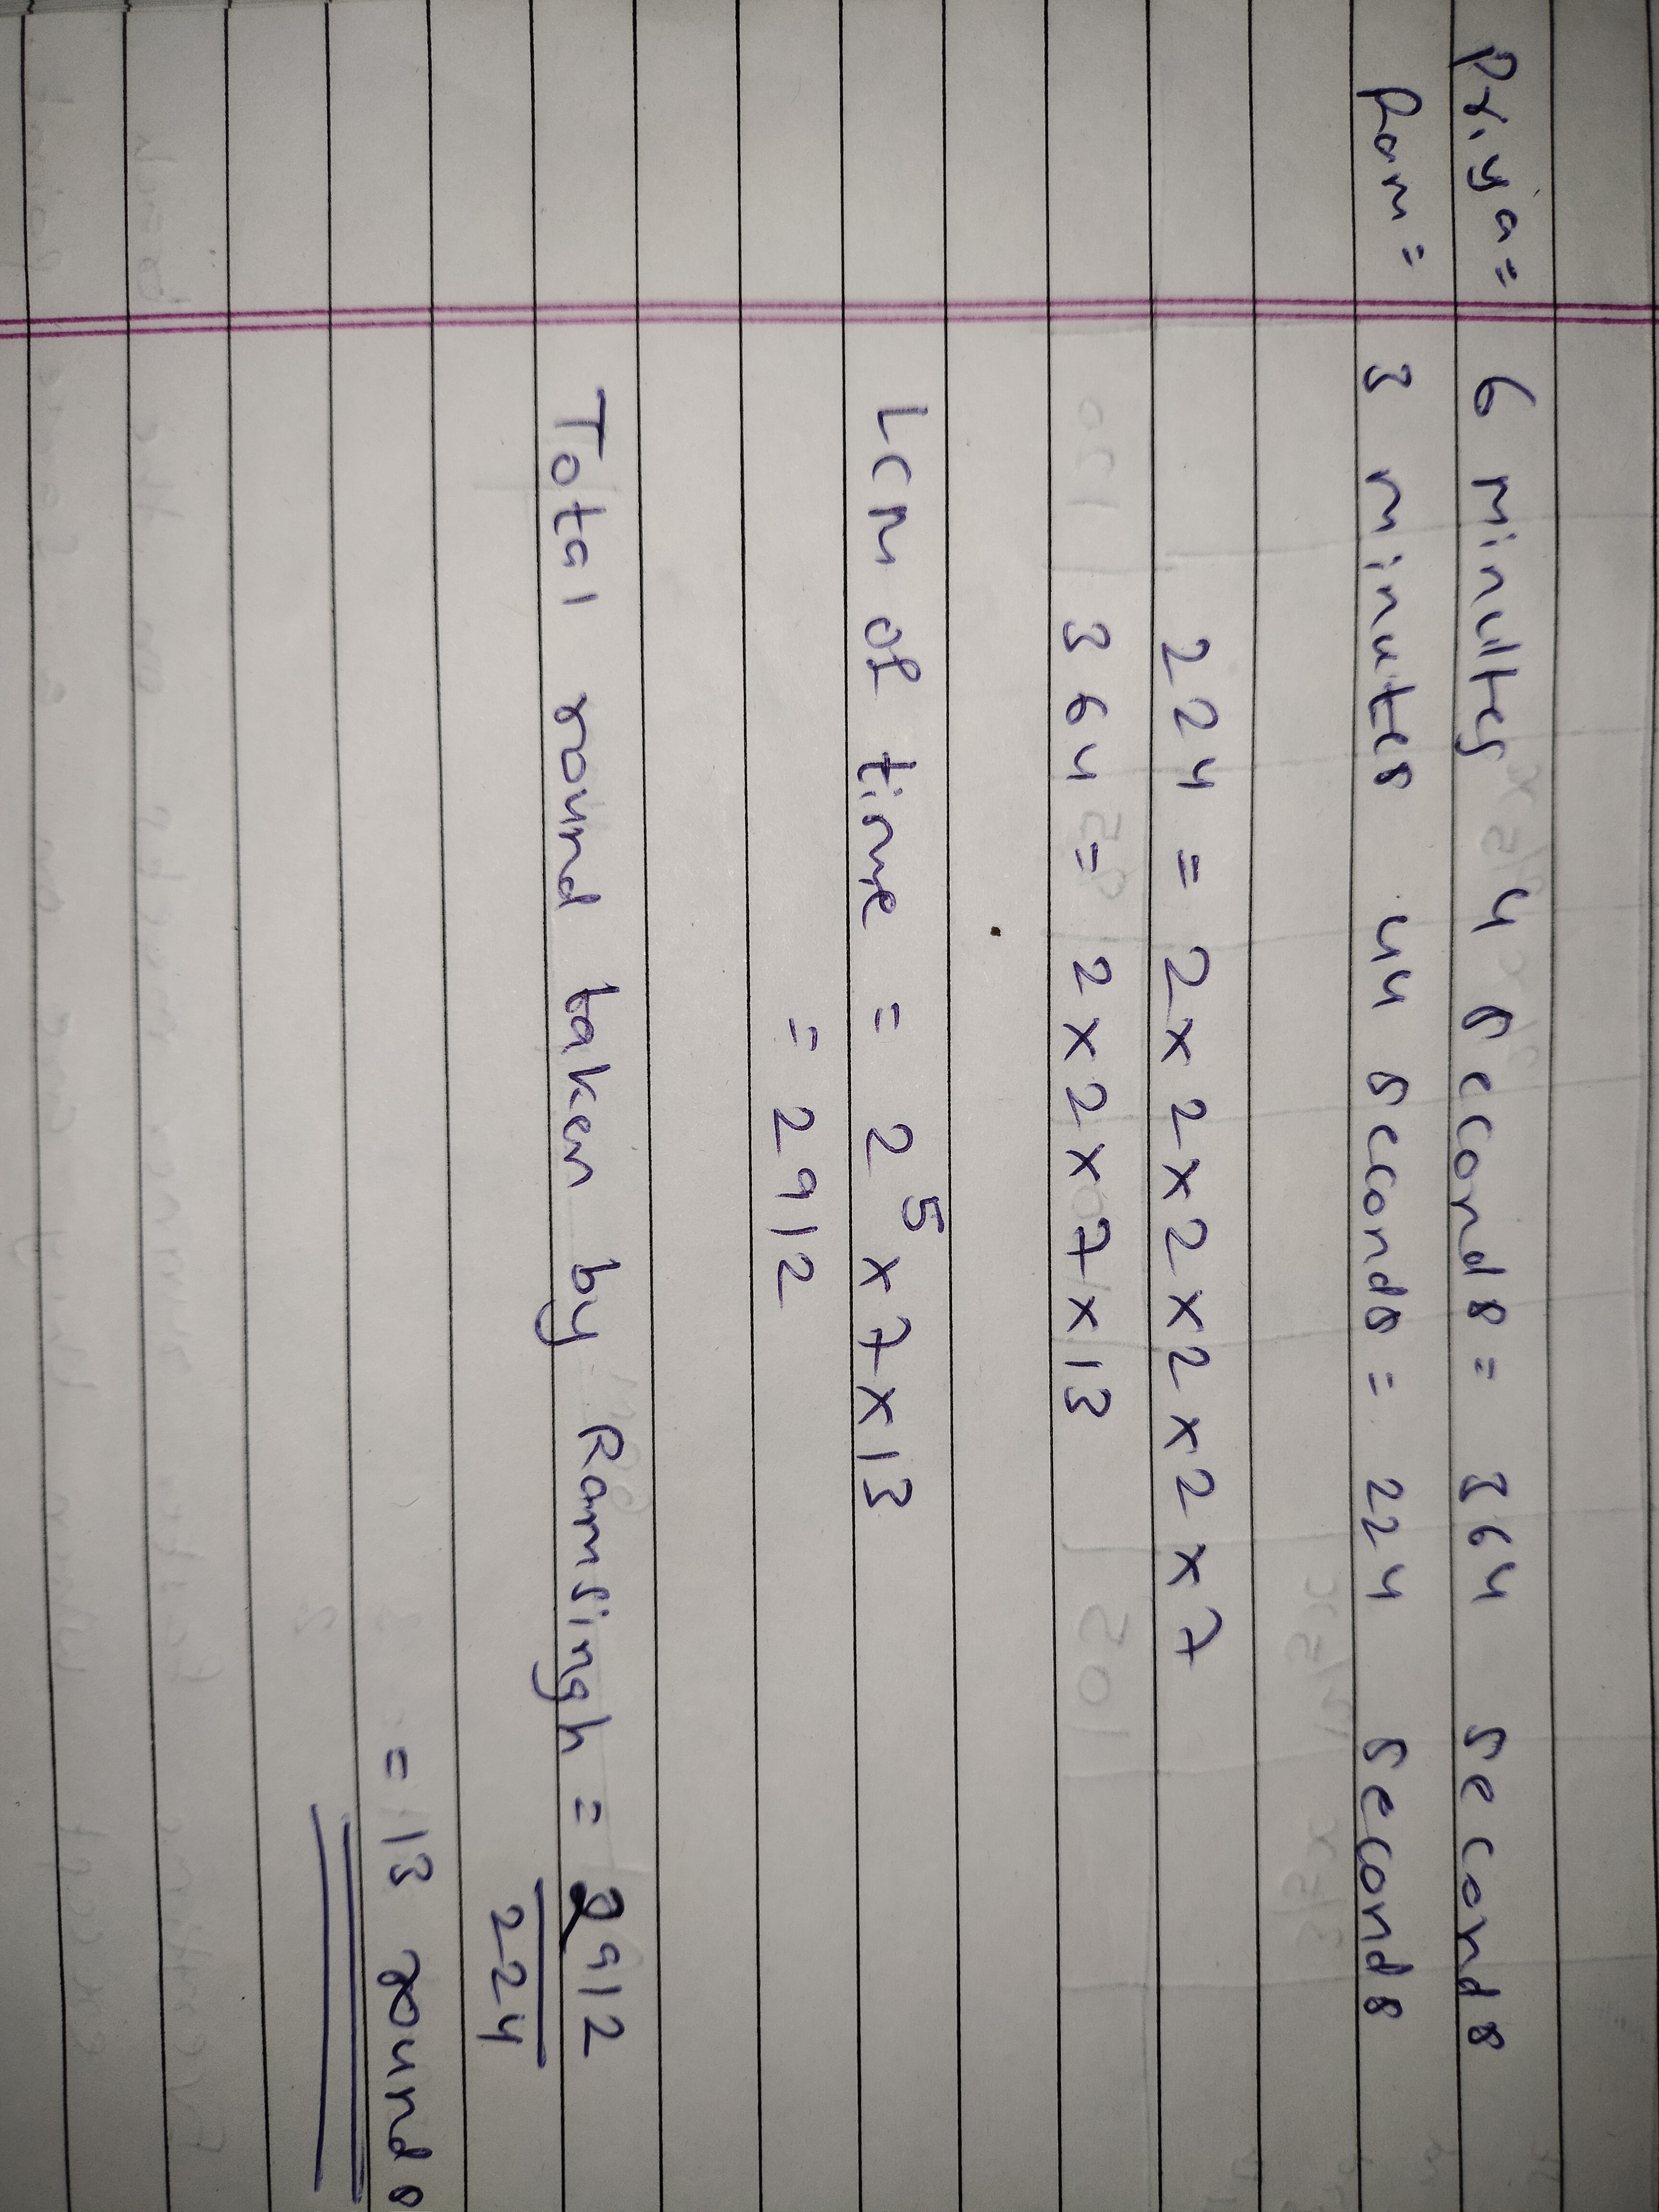 Priya = 6 minultes 4 seconds = 364 seconds
Ram = 3 minutes 44 seconds = 224 seconds
224 = 2 x 2 x 2 x 2 x 2 x 7
364 = 2 x 2 x 7 x 13
Lcm of time = 2⁵ x 7 x 13
= 2912
Total round taken by Ramsingh = 2912/224
= 13 rounds